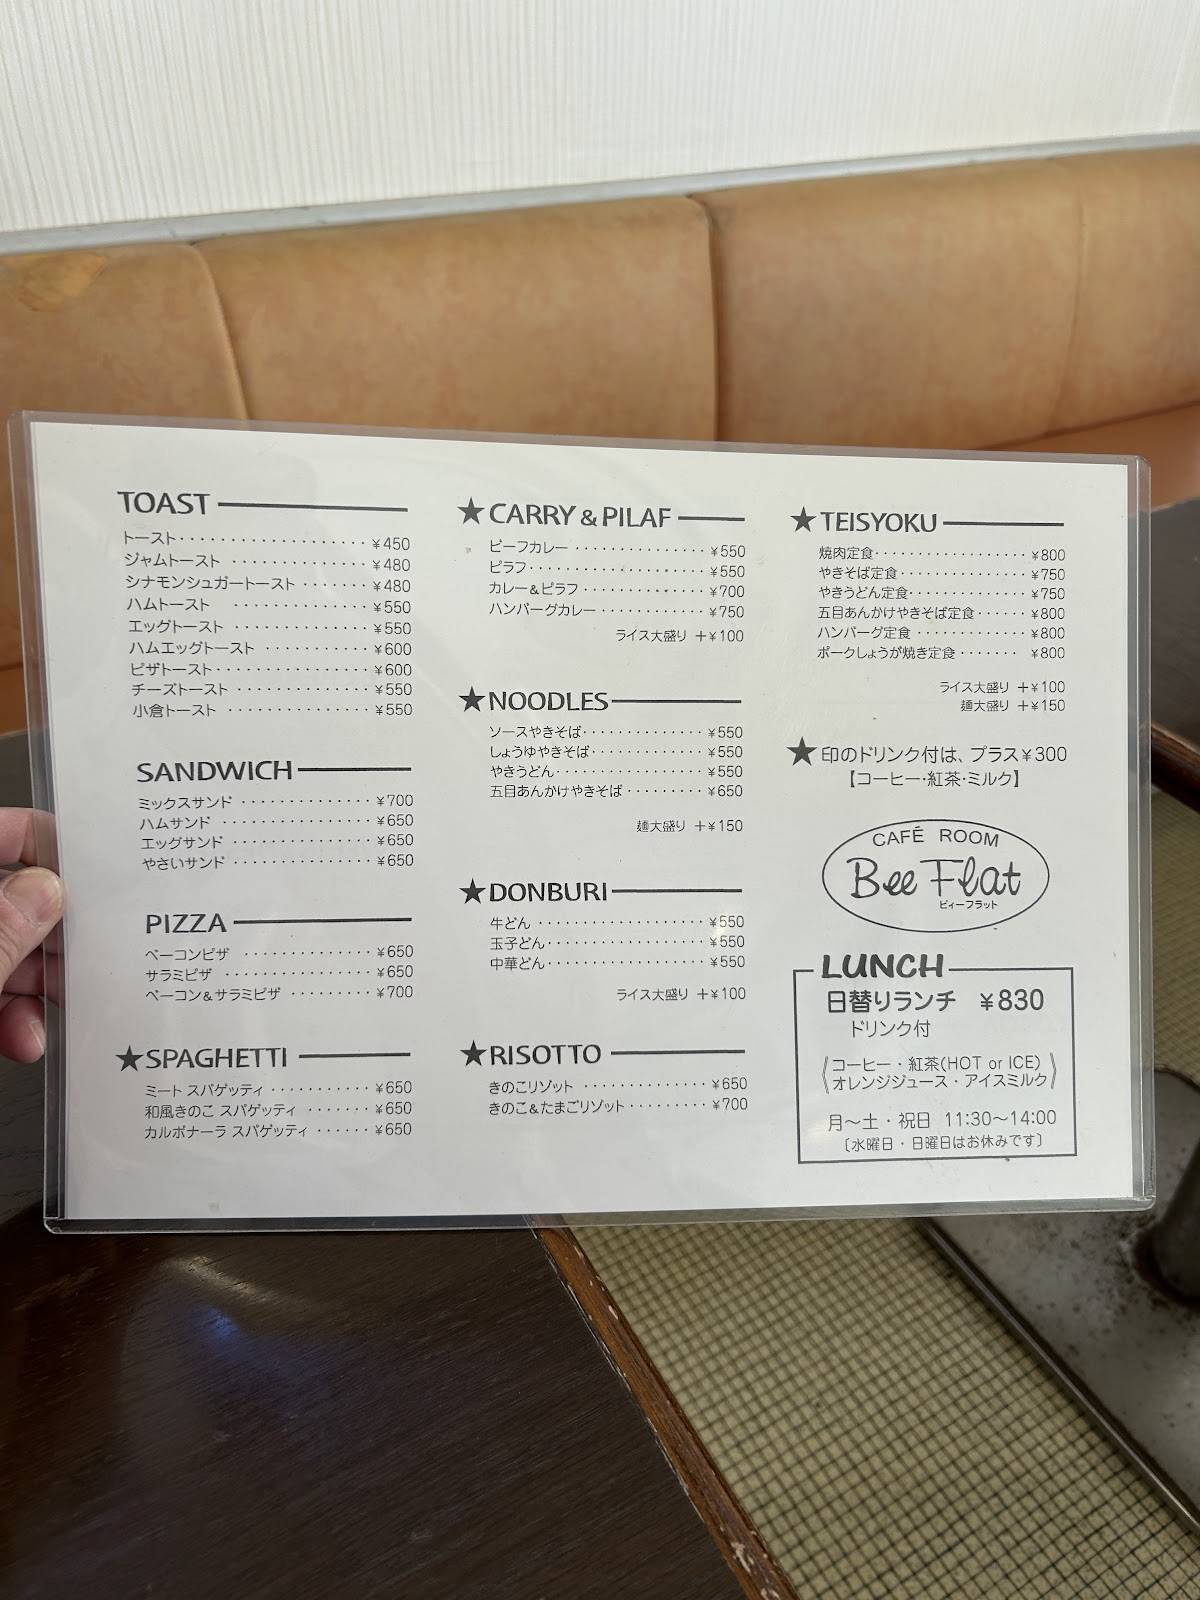 TOAST
トースト・・・・・・・・・・・・・・・・・・・ ¥450
ジャムトースト ・・・・・・・・・・・・・・ ¥480
シナモンシュガートースト ・・・・・・・ ¥480
ハムトースト ・・・・・・・・・・・・・・ ¥550
エッグトースト ・・・・・・・・・・・・・・ ¥550
ハムエッグトースト ・・・・・・・・・・・ ¥600
ピザトースト・・・・・・・・・・・・・・・・ ¥600
チーズトースト ・・・・・・・・・・・・・・ ¥550
小倉トースト ・・・・・・・・・・・・・・・ ¥550
SANDWICH
ミックスサンド ・・・・・・・・・・・・・・ ¥700
ハムサンド ・・・・・・・・・・・・・・・・ ¥650
エッグサンド ・・・・・・・・・・・・・・・ ¥650
やさいサンド ・・・・・・・・・・・・・・・ ¥650
PIZZA
ベーコンピザ ・・・・・・・・・・・・・・ ¥650
サラミピザ ・・・・・・・・・・・・・・・・ ¥650
ベーコン&サラミピザ ・・・・・・・・・ ¥700
★SPAGHETTI
ミート スパゲッティ ・・・・・・・・・・・ ¥650
和風きのこ スパゲッティ ・・・・・・・ ¥650
カルボナーラ スパゲッティ ・・・・・・ ¥650
★CARRY & PILAF
ビーフカレー ・・・・・・・・・・・・・・・ ¥550
ピラフ・・・・・・・・・・・・・・・・・・・・ ¥550
カレー&ピラフ ・・・・・・・・・・・・・・ ¥700
ハンバーグカレー・・・・・・・・・・・・ ¥750
ライス大盛り +¥100
★NOODLES
ソースやきそば・・・・・・・・・・・・・・ ¥550
しょうゆやきそば・・・・・・・・・・・・・ ¥550
やきうどん・・・・・・・・・・・・・・・・・ ¥550
五目あんかけやきそば ・・・・・・・・・ ¥650
麺大盛り +¥150
★DONBURI
牛どん ・・・・・・・・・・・・・・・・・・・ ¥550
玉子どん・・・・・・・・・・・・・・・・・・ ¥550
中華どん・・・・・・・・・・・・・・・・・・ ¥550
ライス大盛り +¥100
★RISOTTO
きのこリゾット ・・・・・・・・・・・・・・ ¥650
きのこ&たまごリゾット・・・・・・・・・ ¥700
★TEISYOKU
焼肉定食・・・・・・・・・・・・・・・・・・ ¥800
やきそば定食・・・・・・・・・・・・・・・ ¥750
やきうどん定食・・・・・・・・・・・・・・ ¥750
五目あんかけやきそば定食・・・・・・ ¥800
ハンバーグ定食 ・・・・・・・・・・・・・ ¥800
ポークしょうが焼き定食・・・・・・・ ¥800
ライス大盛り +¥100
麺大盛り +¥150
★印のドリンク付は、プラス¥300
【コーヒー・紅茶・ミルク】
CAFÉ ROOM
Bee Flat
ビィーフラット
LUNCH
日替りランチ ¥830
ドリンク付
コーヒー・紅茶(HOT or ICE)
オレンジジュース・アイスミルク
月〜土・祝日 11:30〜14:00
〔水曜日・日曜日はお休みです〕